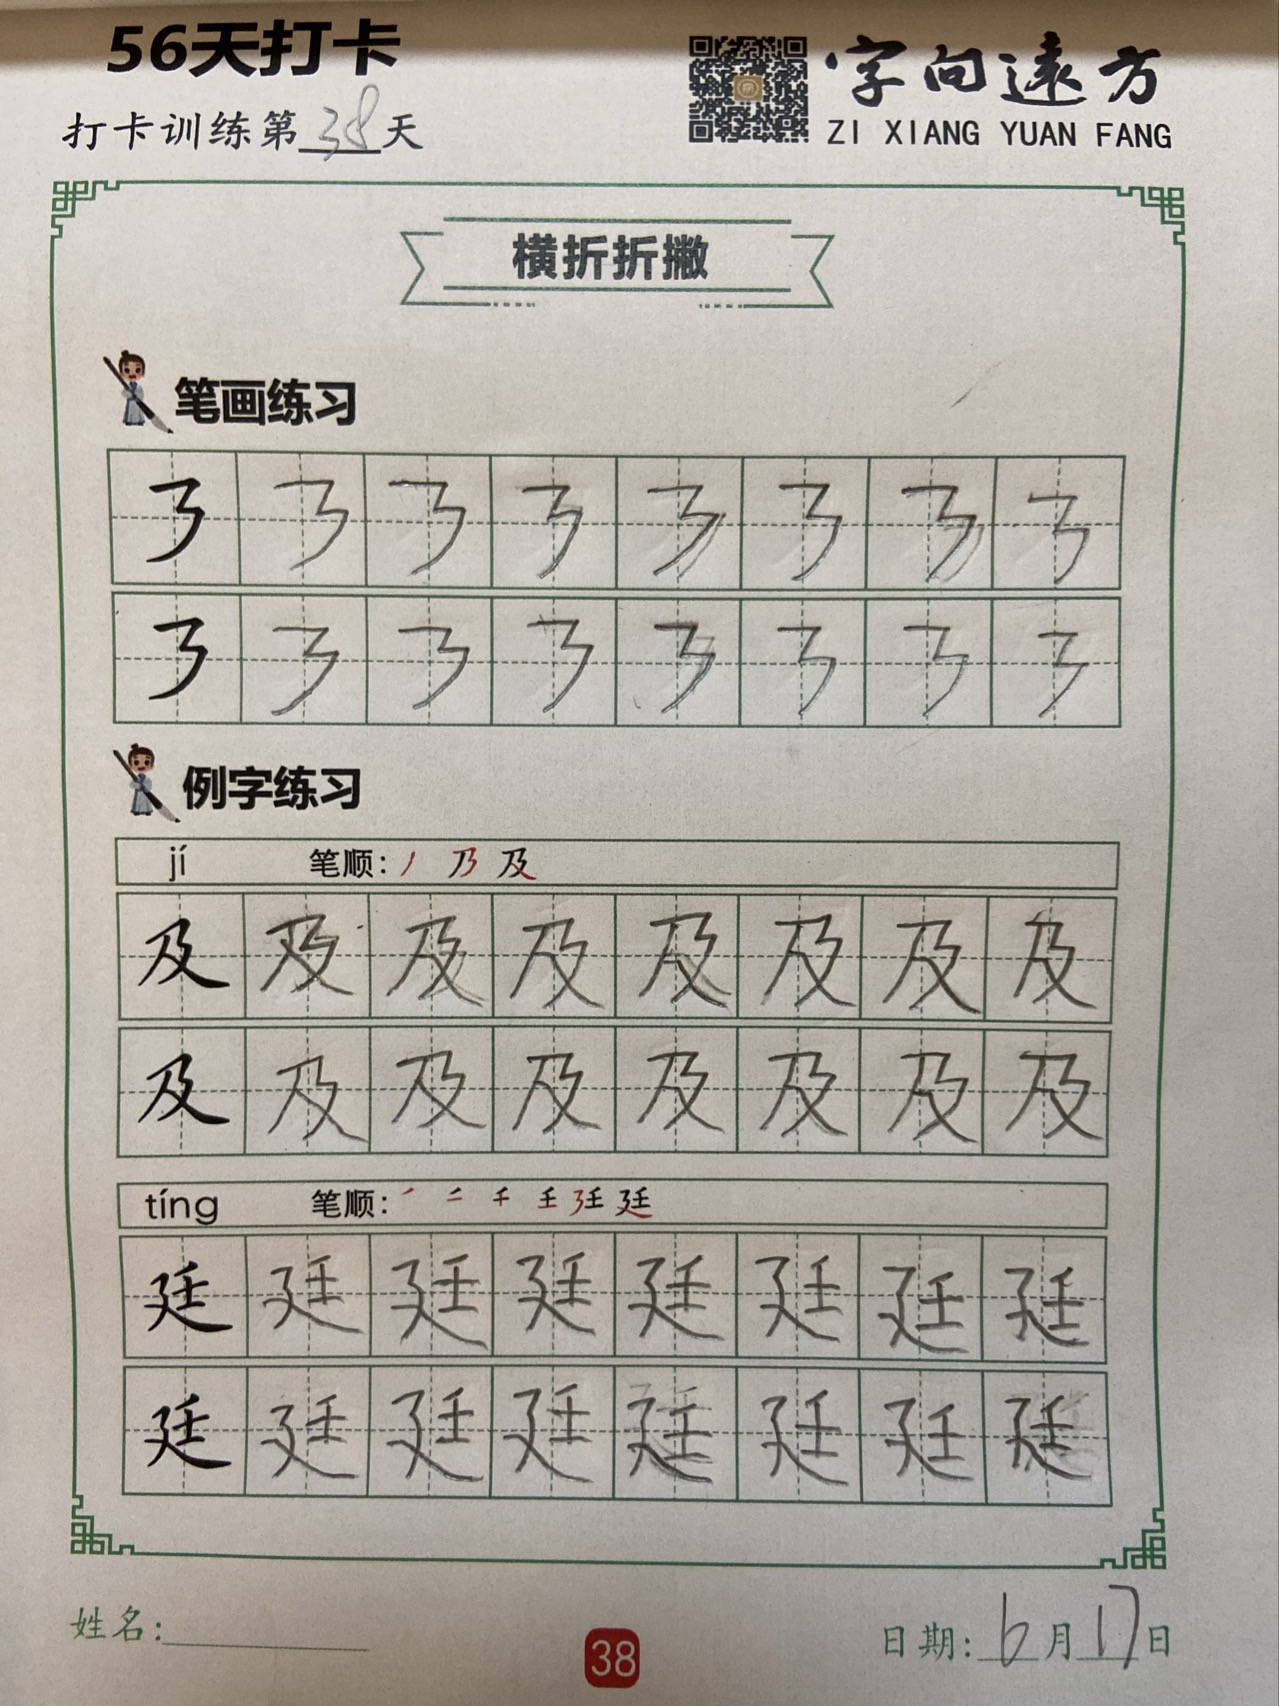 56天打卡
打卡训练第38天
字向遠方
ZI XIANG YUAN FANG
横折折撇
笔画练习
㇋ ㇋ ㇋ ㇋ ㇋ ㇋ ㇋ ㇋
㇋ ㇋ ㇋ ㇋ ㇋ ㇋ ㇋ ㇋
例字练习
jí 笔顺: 丿 乃 及
及 及 及 及 及 及 及 及
及 及 及 及 及 及 及 及
tíng 笔顺:
廷 廷 廷 廷 廷 廷 廷 廷
廷 廷 廷 廷 廷 廷 廷 廷
姓名:
38
日期: 6月17日